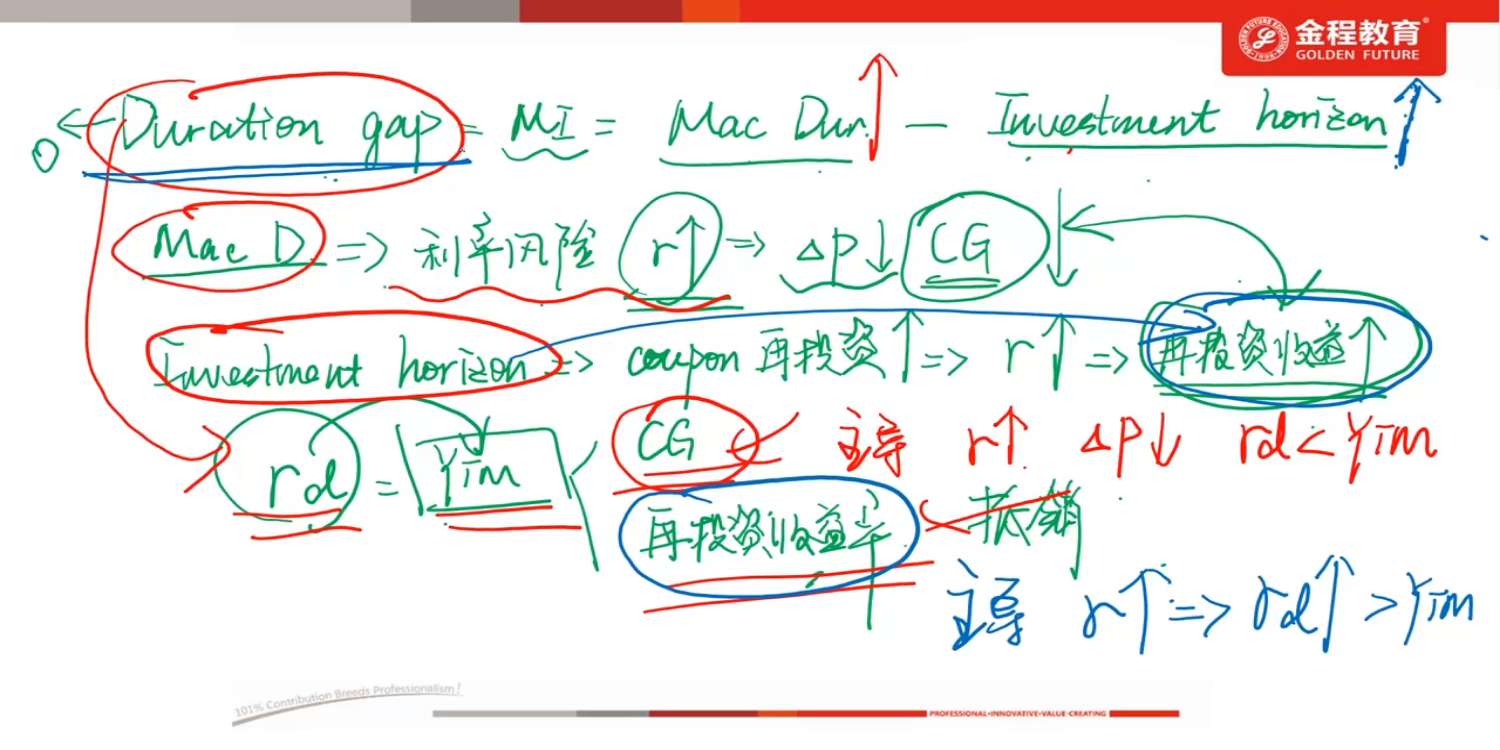 金程教育®
GOLDEN FUTURE
0 ← Duration gap = MI = Mac Dur ↑ — Investment horizon ↑
Mac D => 利率风险 r↑ => ΔP↓ CG ↓
Investment horizon => coupon 再投资↑ => r↑ => 再投资收益↑
rd = YTM CG 主导 r↑ ΔP↓ rd < YTM
再投资收益率 抵销
主导 r↑ => rd↑ > YTM
101% Contribution Breeds Professionalism!
PROFESSIONAL•INNOVATIVE•VALUE-CREATING